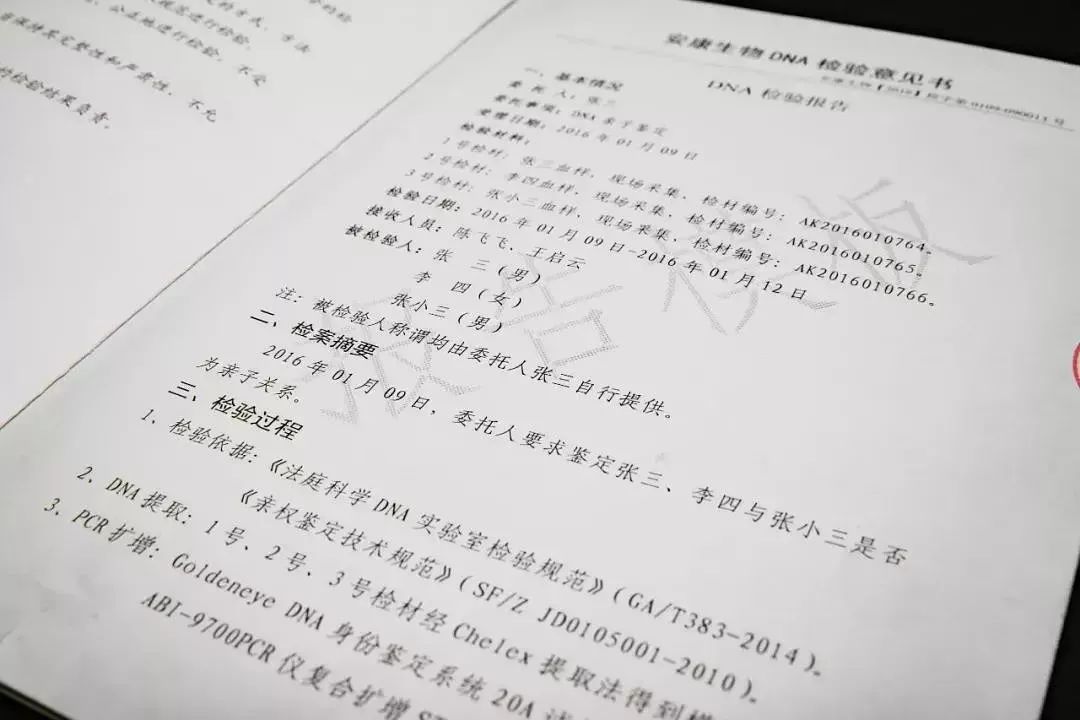 公正地进行检验，不受
安康生物 DNA 检验意见书
DNA 检验报告
一、基本情况
委 托 人：张三
委托事项：DNA 亲子鉴定
受理日期：2016 年 01 月 09 日
检验材料：
1 号检材：张三血样，现场采集，检材编号：AK2016010764。
2 号检材：李四血样，现场采集，检材编号：AK2016010765。
3 号检材：张小三血样，现场采集，检材编号：AK2016010766。
检验日期：2016 年 01 月 09 日-2016 年 01 月 12 日
接收人员：陈飞飞、王启云
被检验人：张 三（男）
李 四（女）
张小三（男）
注：被检验人称谓均由委托人张三自行提供。
二、检案摘要
2016 年 01 月 09 日，委托人要求鉴定张三、李四与张小三是否
为亲子关系。
三、检验过程
1、检验依据：《法庭科学 DNA 实验室检验规范》（GA/T383-2014）。
《亲权鉴定技术规范》（SF/Z JD0105001-2010）。
2、DNA 提取：1 号、2 号、3 号检材经 Chelex 提取法得到模
3、PCR 扩增：Goldeneye DNA 身份鉴定系统 20A
ABI-9700PCR 仪复合扩增
报告模版